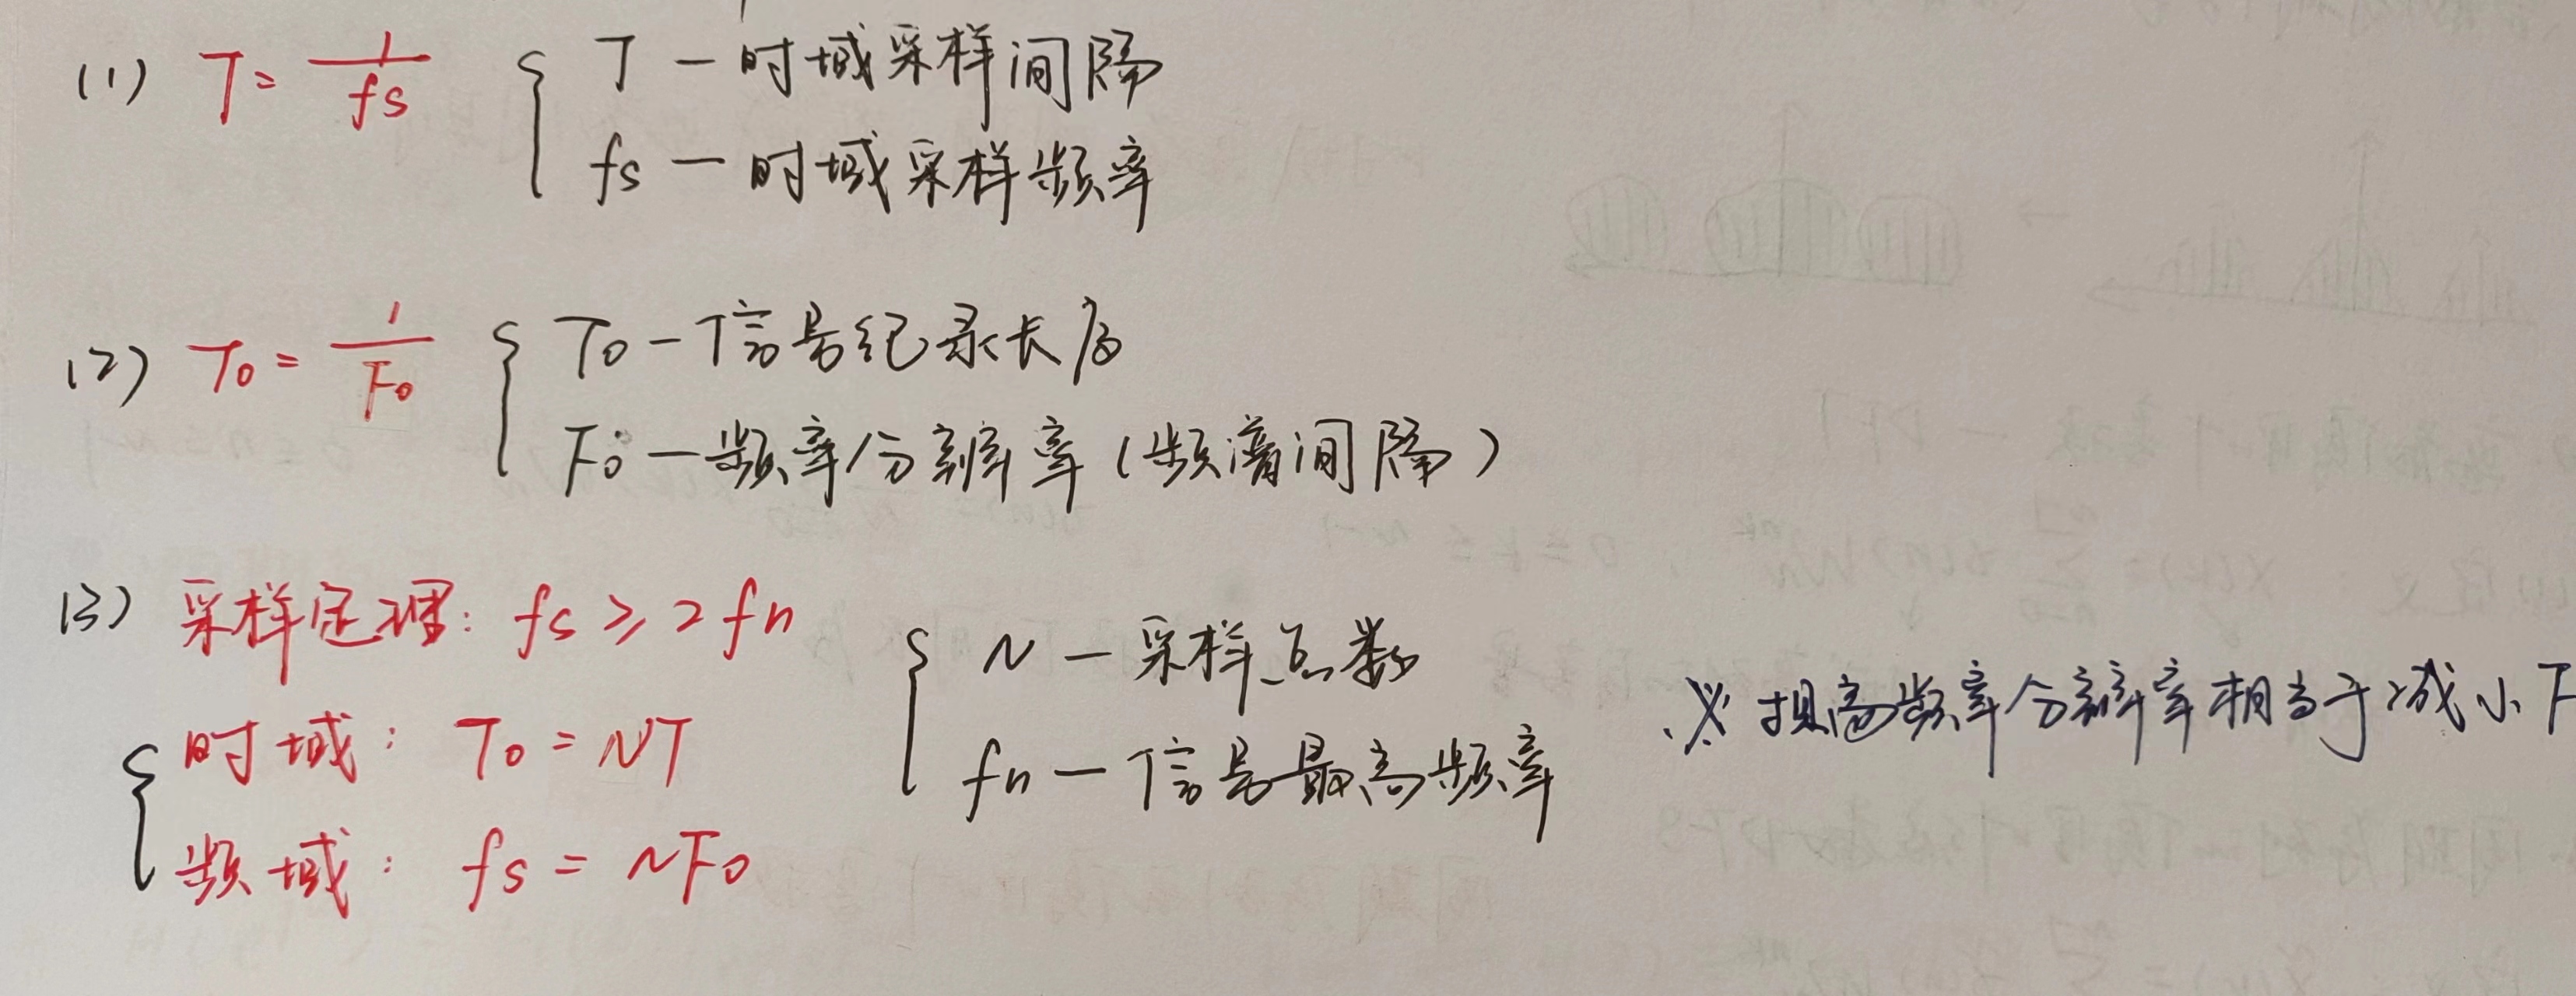 (1) T = 1/fs { T — 时域采样间隔
fs — 时域采样频率
(2) T0 = 1/F0 { T0 — 信号纪录长度
F0 — 频率分辨率 (频谱间隔)
(3) 采样定理: fs ≥ 2fh
{ N — 采样点数
fh — 信号最高频率
{ 时域: T0 = NT
频域: fs = NF0
※ 提高频率分辨率相当于减小F